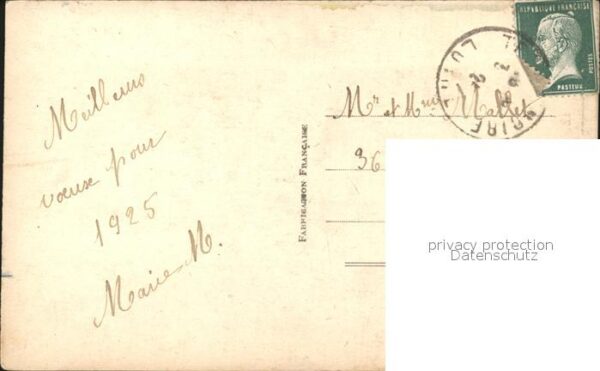 Meilleurs
vœux pour
1925
Marie M.
FABRICATION FRANÇAISE
REPUBLIQUE FRANÇAISE
POSTES
PASTEUR
Mr et Mme
36
privacy protection
Datenschutz